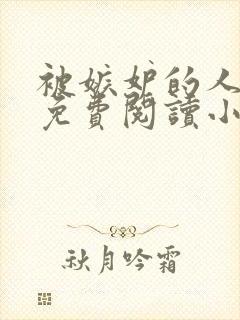 被嫉妒的人
免費閱讀小
秋月吟霜